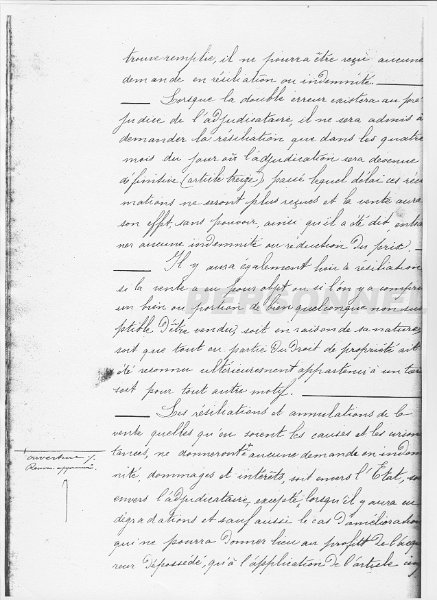 trouve remplie, il ne pourra être reçu aucune
demande en résiliation ou indemnité.
Lorsque la double erreur existera au pré
judice de l'adjudicataire, il ne sera admis à
demander la résiliation que dans les quatre
mois du jour où l'adjudication sera devenue
définitive (article treize) passé lequel délai ces récla
mations ne seront plus reçues et la vente aura
son effet, sans pouvoir, ainsi qu'il a été dit, entraî
ner aucune indemnité ou réduction du prix.
Il y aura également lieu à résiliation
si la vente a eu pour objet ou si l'on y a compris
un bien ou portion de bien quelconque non sus
ptible d'être vendu, soit en raison de sa nature,
soit que tout ou partie du droit de propriété ait
été reconnu ultérieurement appartenir à un tiers
soit pour tout autre motif.
Les résiliations et annulations de la
vente quelles qu'en soient les causes et les circons
tances, ne donneront ouverture à aucune demande en indem
nité, dommages et intérêts, soit envers l'Etat, soit
envers l'adjudicataire, excepté, lorsqu'il y aura eu
dégradations et sauf aussi le cas d'amélioration
qui ne pourra donner lieu au profit de l'acqué
reur dépossédé, qu'à l'application de l'article cinq
ouverture
PERSONNEL